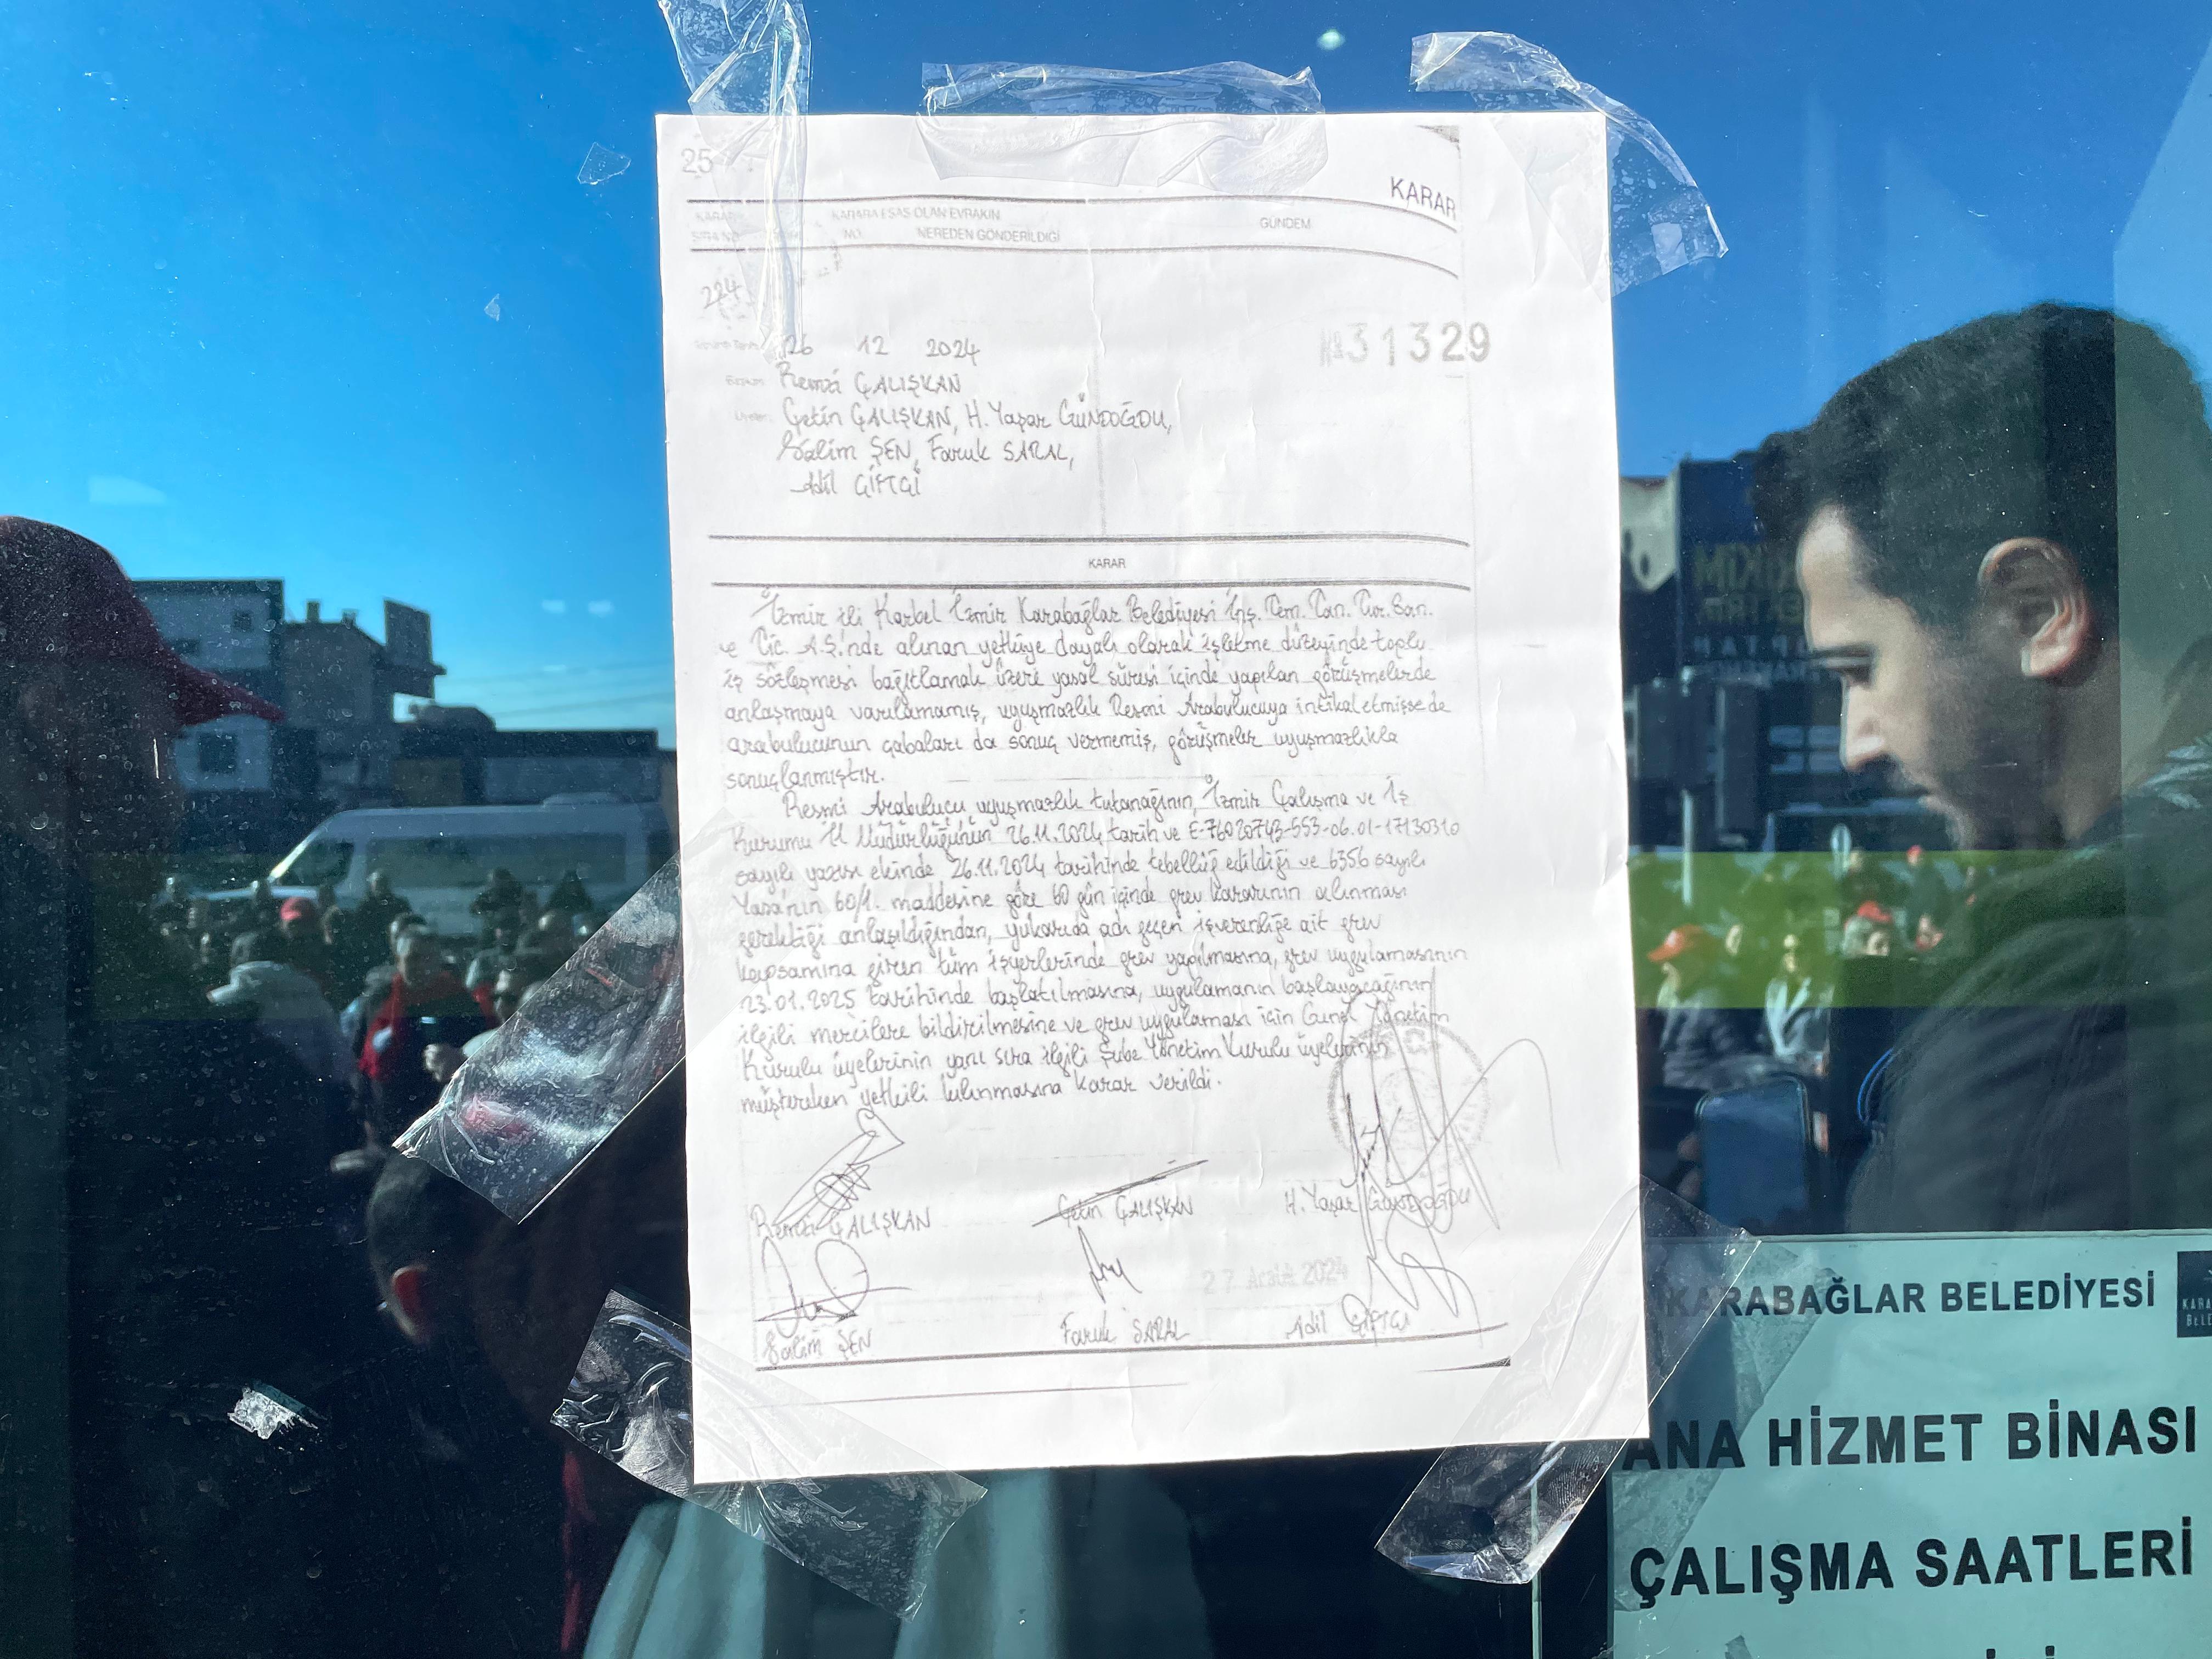 25
KARAR
KARAR KARARA ESAS OLAN EVRAKIN GÜNDEM
SIRA NO. NO. NEREDEN GÖNDERİLDİĞİ
224
26 12 2024
№ 31329
Remzi ÇALIŞKAN
Üyeler: Çetin ÇALIŞKAN, H. Yaşar GÜNDOĞDU,
Salim ŞEN, Faruk SARAL,
Adil ÇİFTÇİ
KARAR
İzmir ili Karbel İzmir Karabağlar Belediyesi İnş. Tem. Tan. Tur. San.
ve Tic. A.Ş.'nde alınan yetkiye dayalı olarak işletme düzeyinde toplu
iş sözleşmesi bağıtlamak üzere yasal süresi içinde yapılan görüşmelerde
anlaşmaya varılamamış, uyuşmazlık Resmi Arabulucuya intikal etmişse de
arabulucunun çabaları da sonuç vermemiş, görüşmeler uyuşmazlıkla
sonuçlanmıştır.
Resmi Arabulucu uyuşmazlık tutanağının, İzmir Çalışma ve İş
Kurumu İl Müdürlüğünün 26.11.2024 tarih ve E-76020743-553-06.01-17130310
sayılı yazısı ekinde 26.11.2024 tarihinde tebellüğ edildiği ve 6356 sayılı
Yasa'nın 60/1. maddesine göre 60 gün içinde grev kararının alınması
gerektiği anlaşıldığından, yukarıda adı geçen işverenliğe ait grev
kapsamına giren tüm işyerlerinde grev yapılmasına, grev uygulamasının
23.01.2025 tarihinde başlatılmasına, uygulamanın başlayacağının
ilgili mercilere bildirilmesine ve grev uygulaması için Genel Yönetim
Kurulu üyelerinin yanı sıra ilgili Şube Yönetim Kurulu üyelerinin
müştereken yetkili kılınmasına karar verildi.
Remzi ÇALIŞKAN Çetin ÇALIŞKAN H. Yaşar GÜNDOĞDU
27 Aralık 2024
Salim ŞEN Faruk SARAL Adil ÇİFTÇİ
KARABAĞLAR BELEDİYESİ
ANA HİZMET BİNASI
ÇALIŞMA SAATLERİ